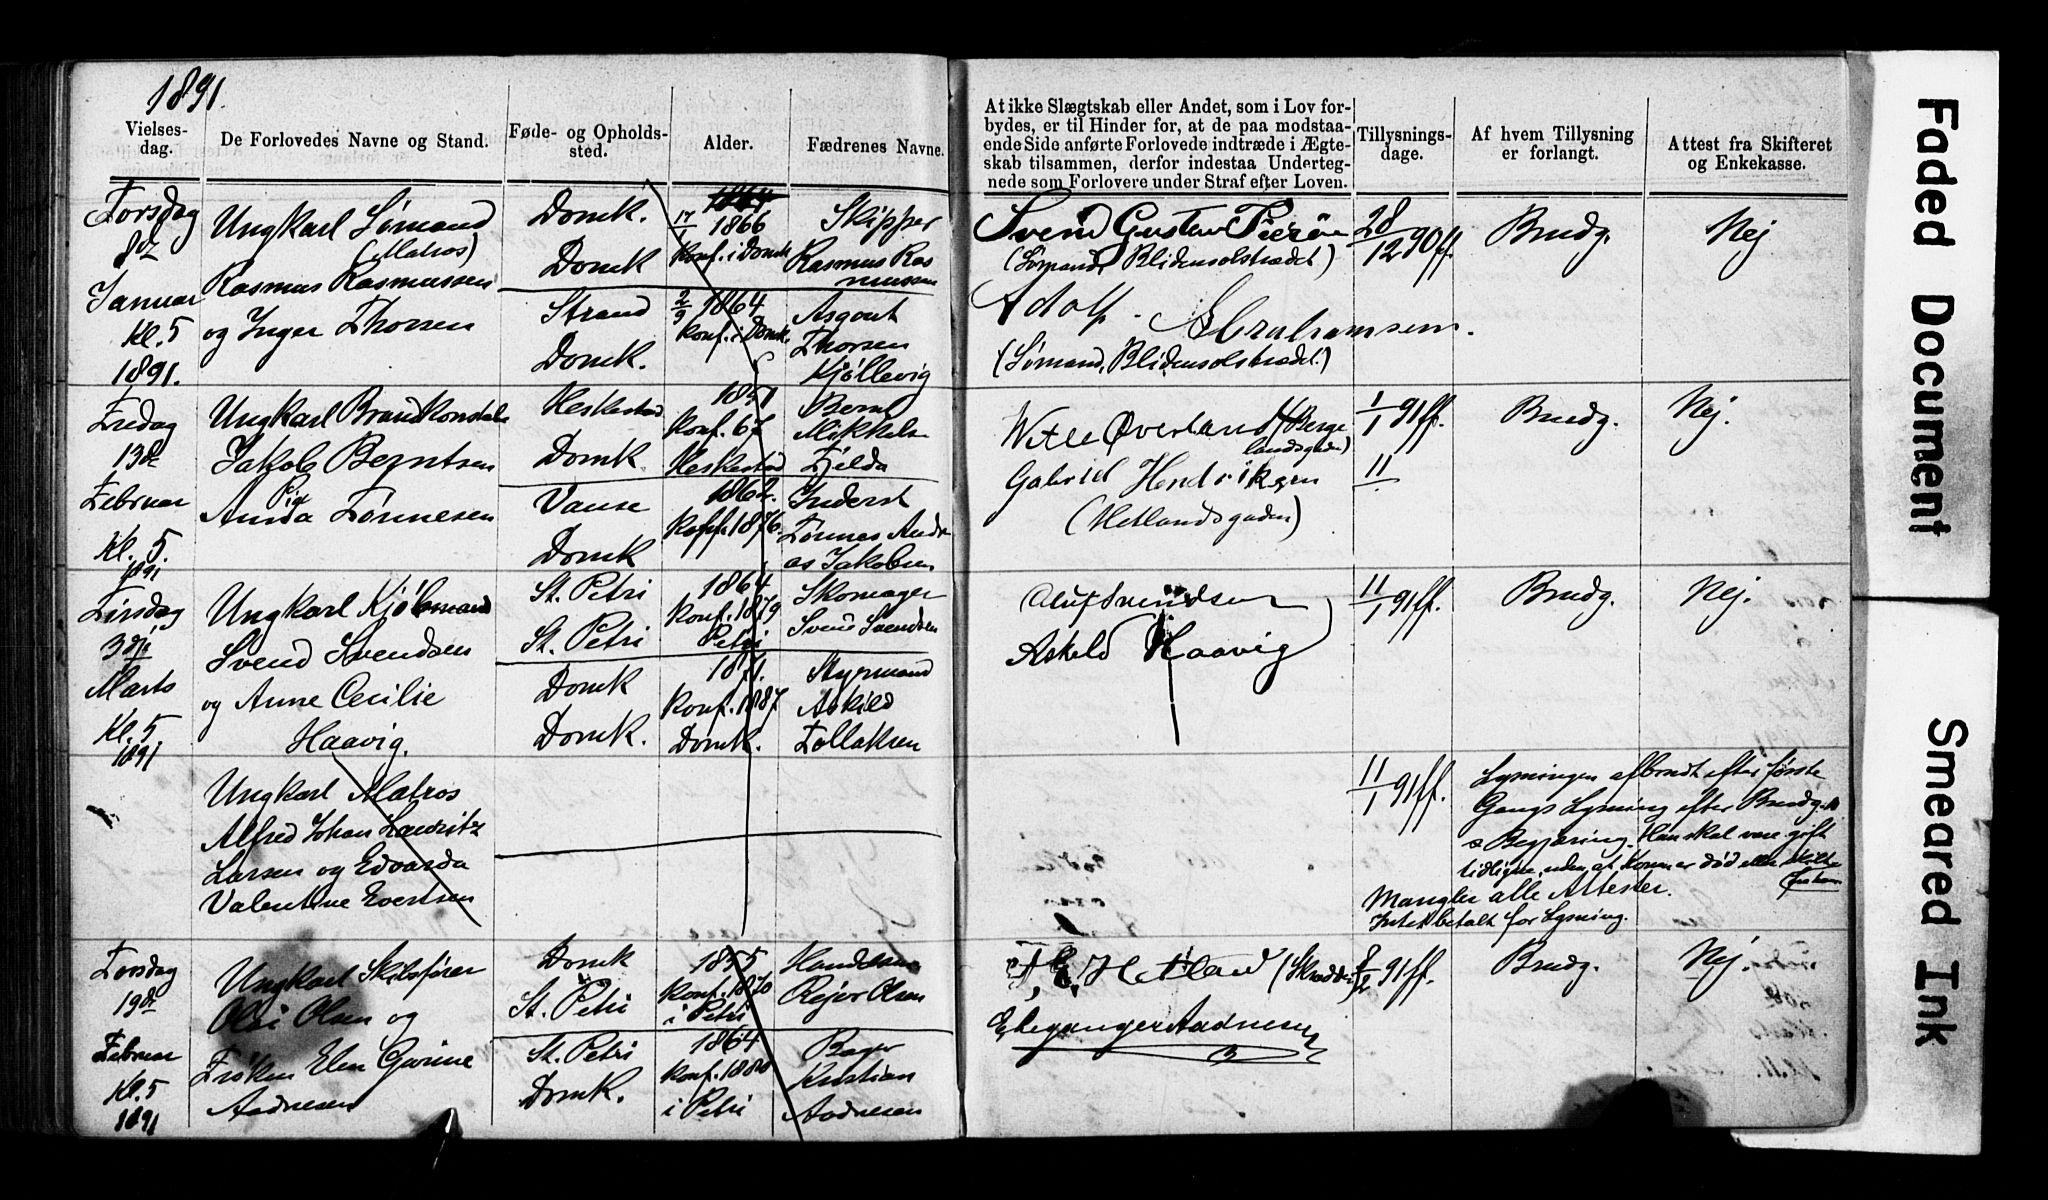 1891.
Vielses-
dag.
De Forlovedes Navne og Stand.
Føde- og Opholds-
sted.
Alder.
Fædrenes Navne.
At ikke Slægtskab eller Andet, som i Lov for-
bydes, er til Hinder for, at de paa modstaa-
ende Side anførte Forlovede indtræde i Ægte-
skab tilsammen, derfor indestaa Underteg-
nede som Forlovere under Straf efter Loven.
Tillysnings-
dage.
Af hvem Tillysning
er forlangt.
Attest fra Skifteret
og Enkekasse.
Torsdag
8de
Januar
Kl. 5
1891.
Ungkarl Sømand
(Matros)
Rasmus Rasmussen
og Inger Thorsen
Domk.
Domk
Strand
Domk.
17/1 1866
Konf. i Domk
2/9 1864
Konf. i Domk.
Skipper
Rasmus Ras
mussen
Asgout
Thorsen
Kjøllevig
Svend Gustav
(Sømand, Blidensolstrædet)
Adolf Abrahamsen.
(Sømand, Blidensolstrædet)
28/12 90 ff.
Brudg.
Nej
Fredag
13de
Februar
Kl. 5.
1891
Ungkarl Brandkonstabel
Jakob Berntsen
Pia
Anna Tønnesen
Heskestad
Domk
Vanse
Domk
1851
Konf. 67
Heskestad
1862.
Konf. 1876.
Bernt
Mikkelsen
Fjelda
Inderst
Tønnes Andre
as Jakobsen
Overland (Berge
landsgaden)
Gabriel Hendriksen
(Hetlandsgaden)
1/1 91 ff.
11
Brudg.
Nej.
Tirsdag
3die
Marts
Kl. 5
1891
Ungkarl Kjøbmand
Svend Svendsen
og Anne Cecilie
Haavig.
St. Petri
St. Petri
Domk
Domk.
1864
Konf. 1879
Petri
1871.
Konf. 1887
Domk.
Skomager
Svend Svendsen
Styrmand
Askild
Tollaksen
Oluf Svendsen
Askild Haavig
11/1 91 ff.
Brudg.
Nej.
Ungkarl Matros
Alfred Johan Lauritz
Larsen og Edvarda
Valentine Evertsen
11/1 91 ff.
Lysningen afbrudt efter første
Gangs Lysning efter Brudg.
s Begjæring. Han skal være gift
tidligere, uden at Konen er død eller skilt
Mangler alle Attester.
Intet betalt for Lysning.
Torsdag
19de
Februar
Kl. 5
1891
Ungkarl Skibsfører
Olai Olsen og
Frøken Elen Gurine
Aadnesen
Domk
St. Petri
St. Petri
Domk.
1855
Konf. 1870
i Petri
1864
Konf. 1880
i Petri
Handelsm
Rejer Olsen
Bager
Kristian
Aadnesen
T. E. Hetland (Skrædder)
Aadnesen
8/2 91 ff.
Brudg.
Nej.
Faded Document
Smeared Ink